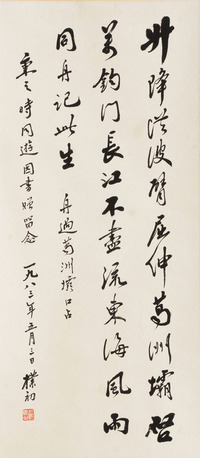 升降洪波臂屈伸葛洲壩啓
萬鈞門長江不盡流東海風雨
同舟記此生 舟過葛洲壩口占
秉之時同遊因書贈留念 一九八三年五月三日 樸初